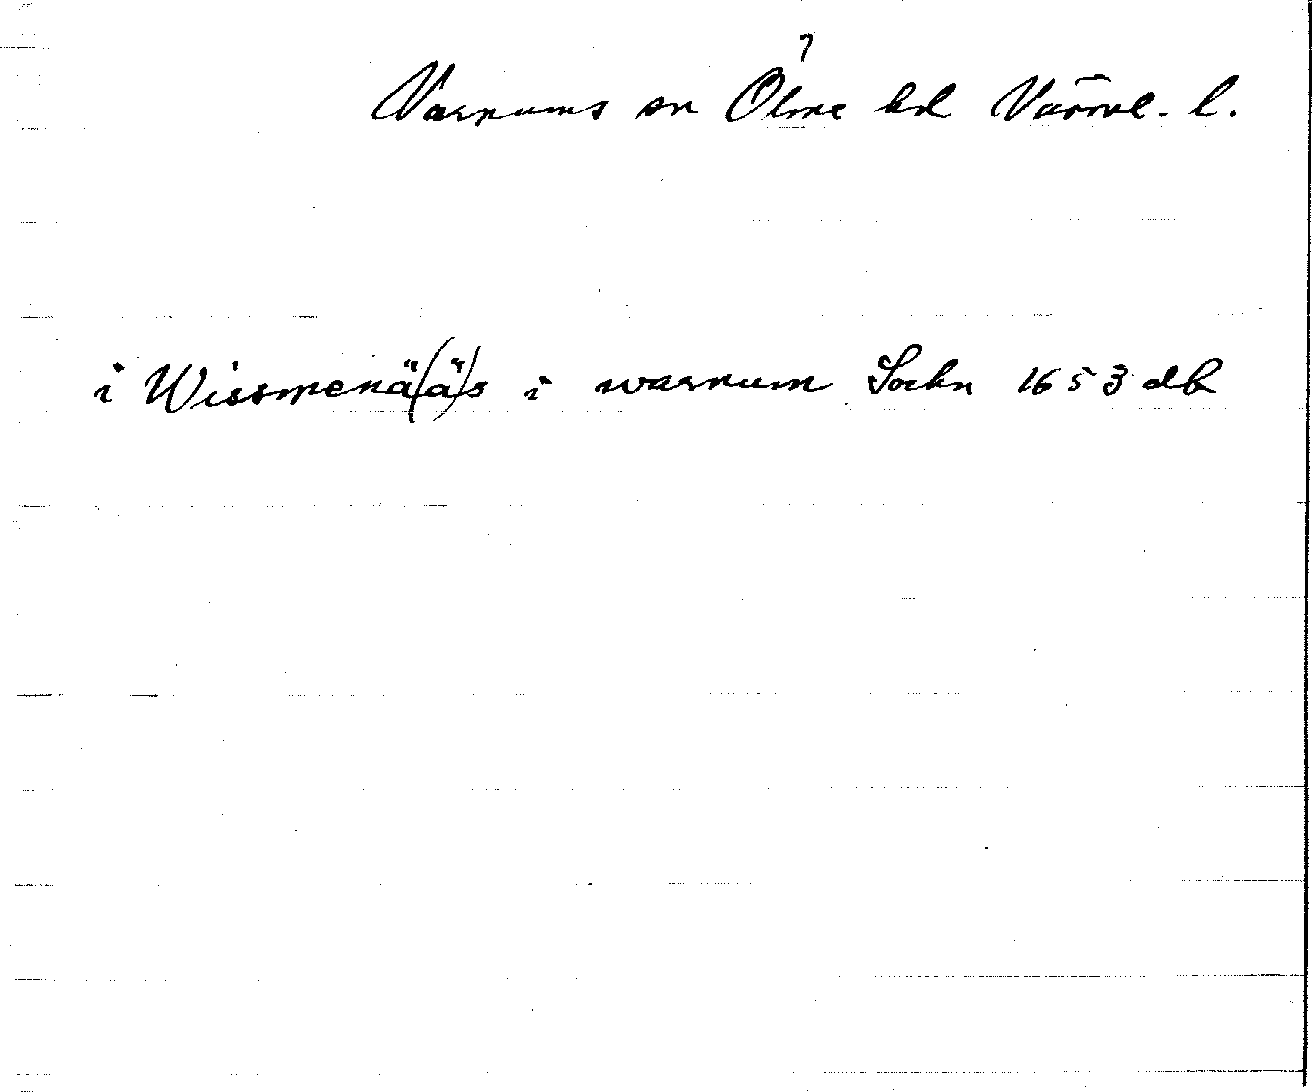 ?
Varnums sn Ölme hd Värml. l.
i Wissmenä(ä)s i warnum Sockn 1653 db